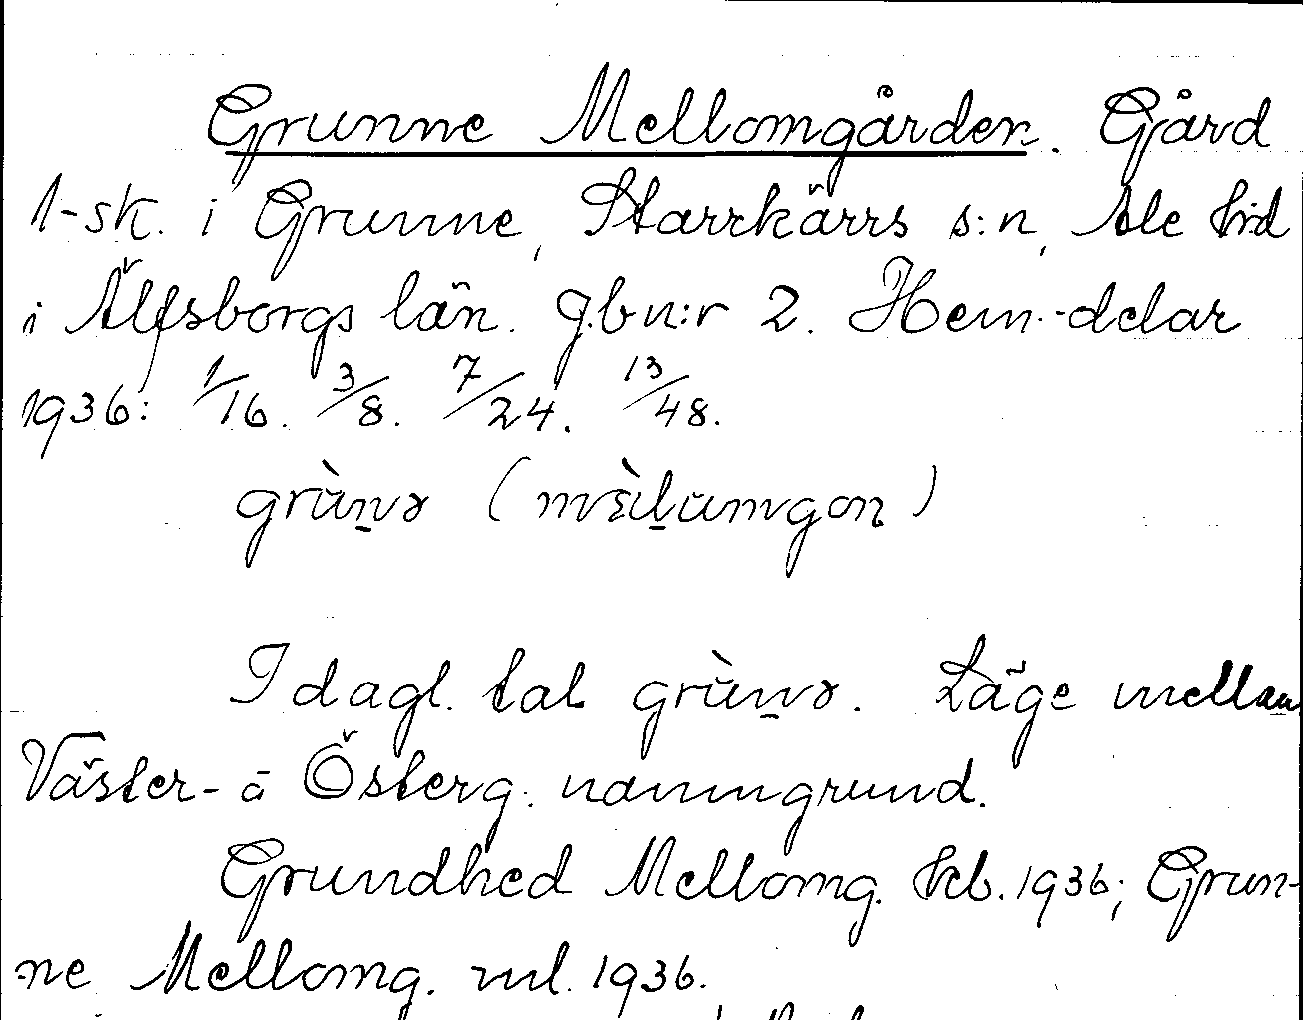 Grunne Mellomgården. Gård
1-sk. i Grunne, Starrkärrs s:n, Ale hrd
i Älfsborgs län. g.b n:r 2. Hem.-delar
1936: 1/16. 3/8. 7/24. 13/48.
grùn̠ə (mèl̠umgọn)
I dagl. tal grùn̠ə. Läge mellan
Väster- å Österg. namngrund.
Grundhed Mellomg. kb. 1936; Grun-
ne Mellomg. ml. 1936.